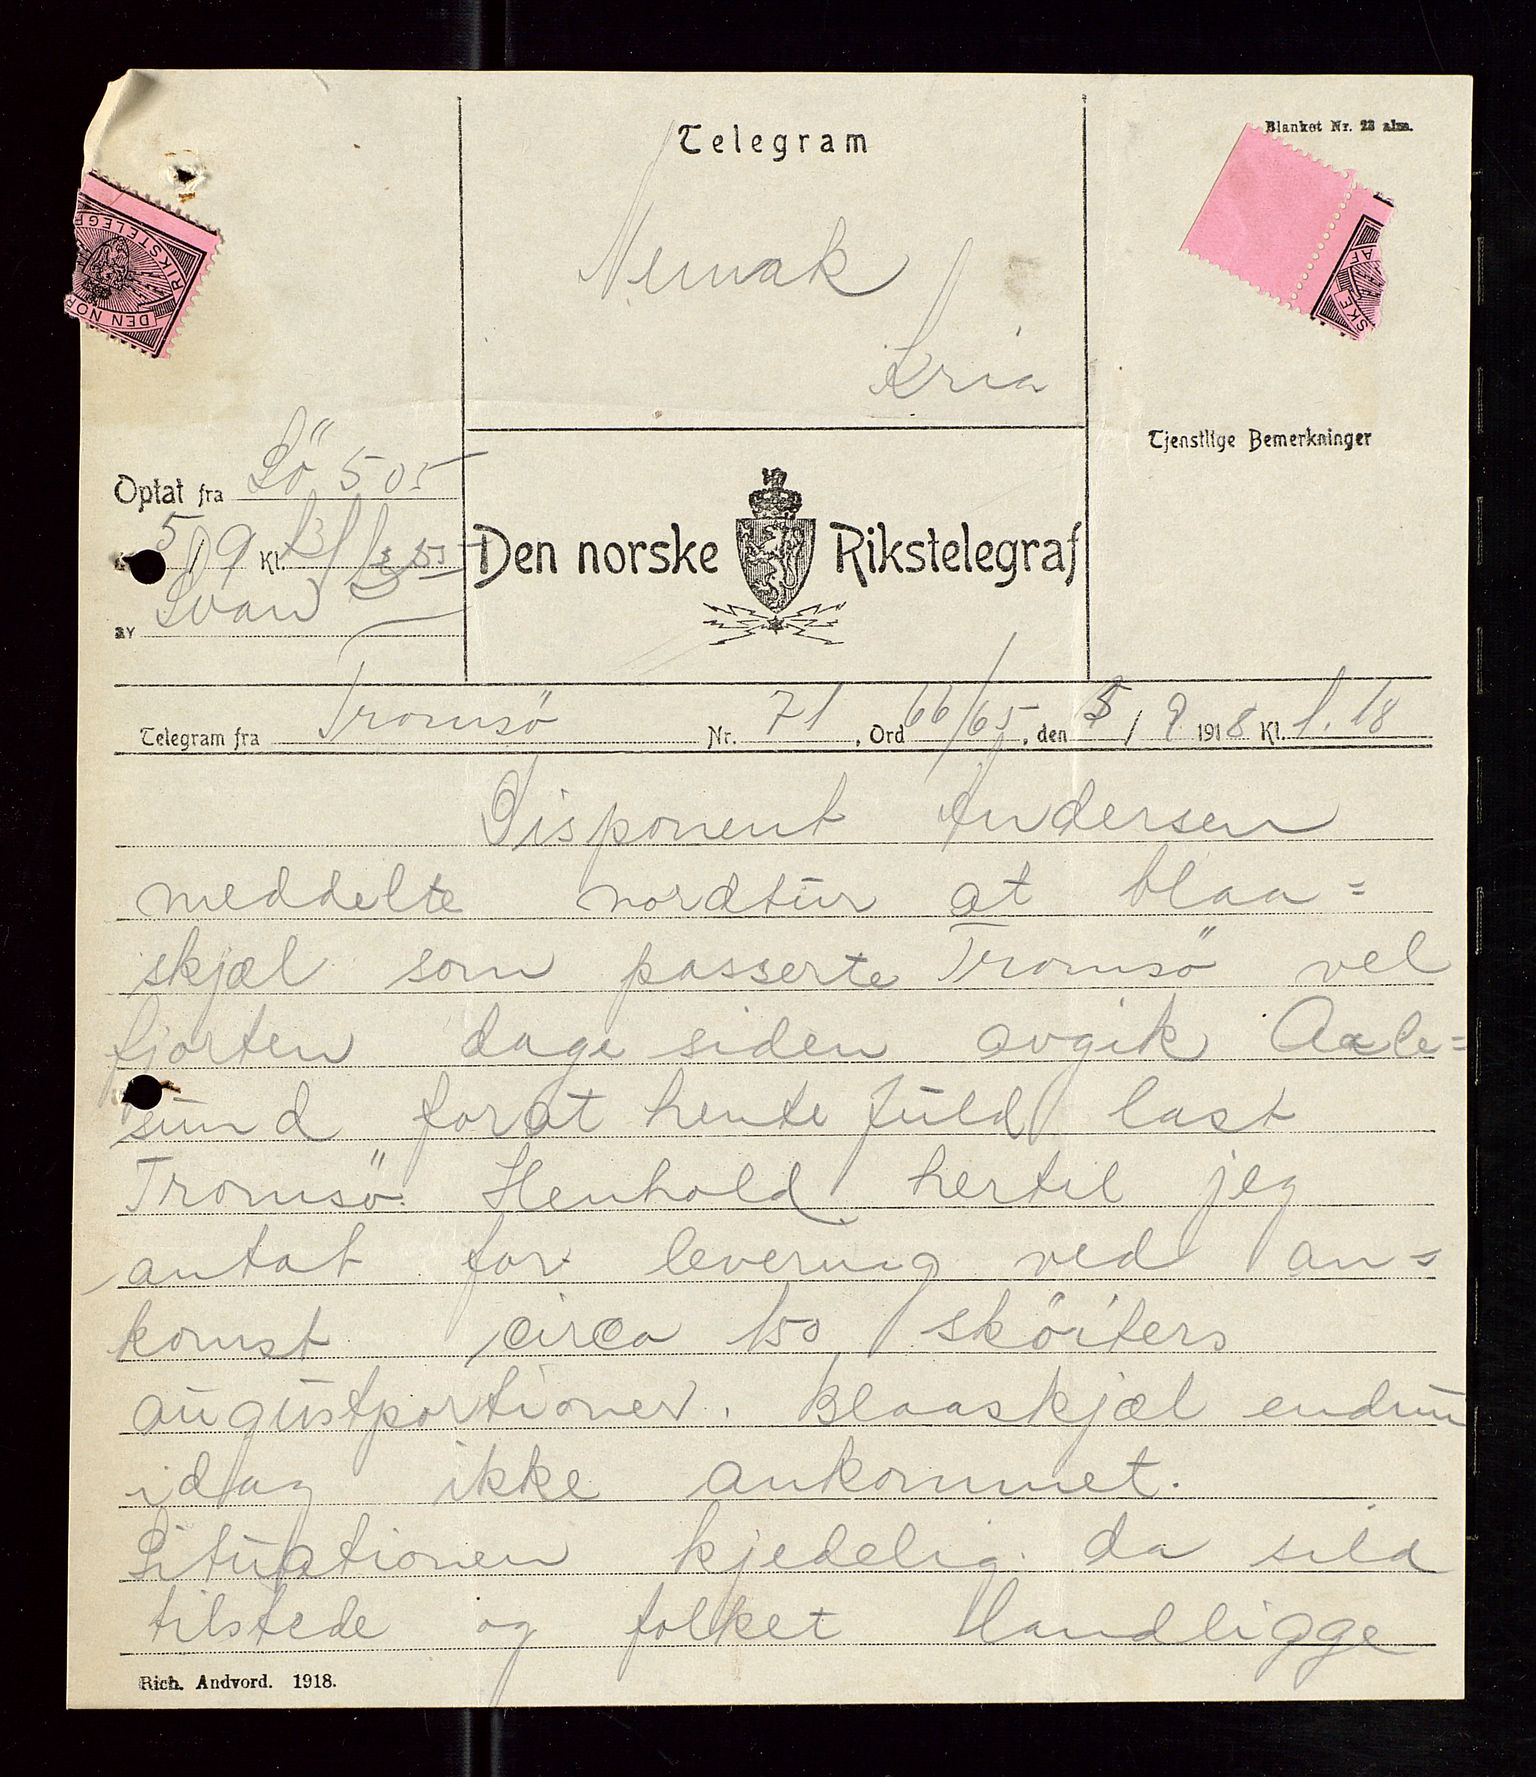 Blanket Nr. 23 alm.
Telegram
Nemak
Kria
Tjenstlige Bemerkninger
Optat fra Sö 505
5/9 Kl.
av Svan
Den norske Rikstelegraf
Telegram fra Tromsö Nr. 71, Ord 66/65, den 5/9 1918 Kl. 1.18
Disponent Andersen
meddelte nordtur at blaa=
skjæl som passerte Tromsö vel
fjorten dage siden avgik Aale=
sund forat hente fuld last
Tromsö. Henhold hertil jeg
antat for levering ved an=
komst circa 150 sköiters
augustportioner. Blaaskjæl endnu
idag ikke ankommet.
Situationen kjedelig da sild
tilstede og folket landligge
Rich. Andvord. 1918.
DEN NOR
RIKSTELEGR
SKE
AL